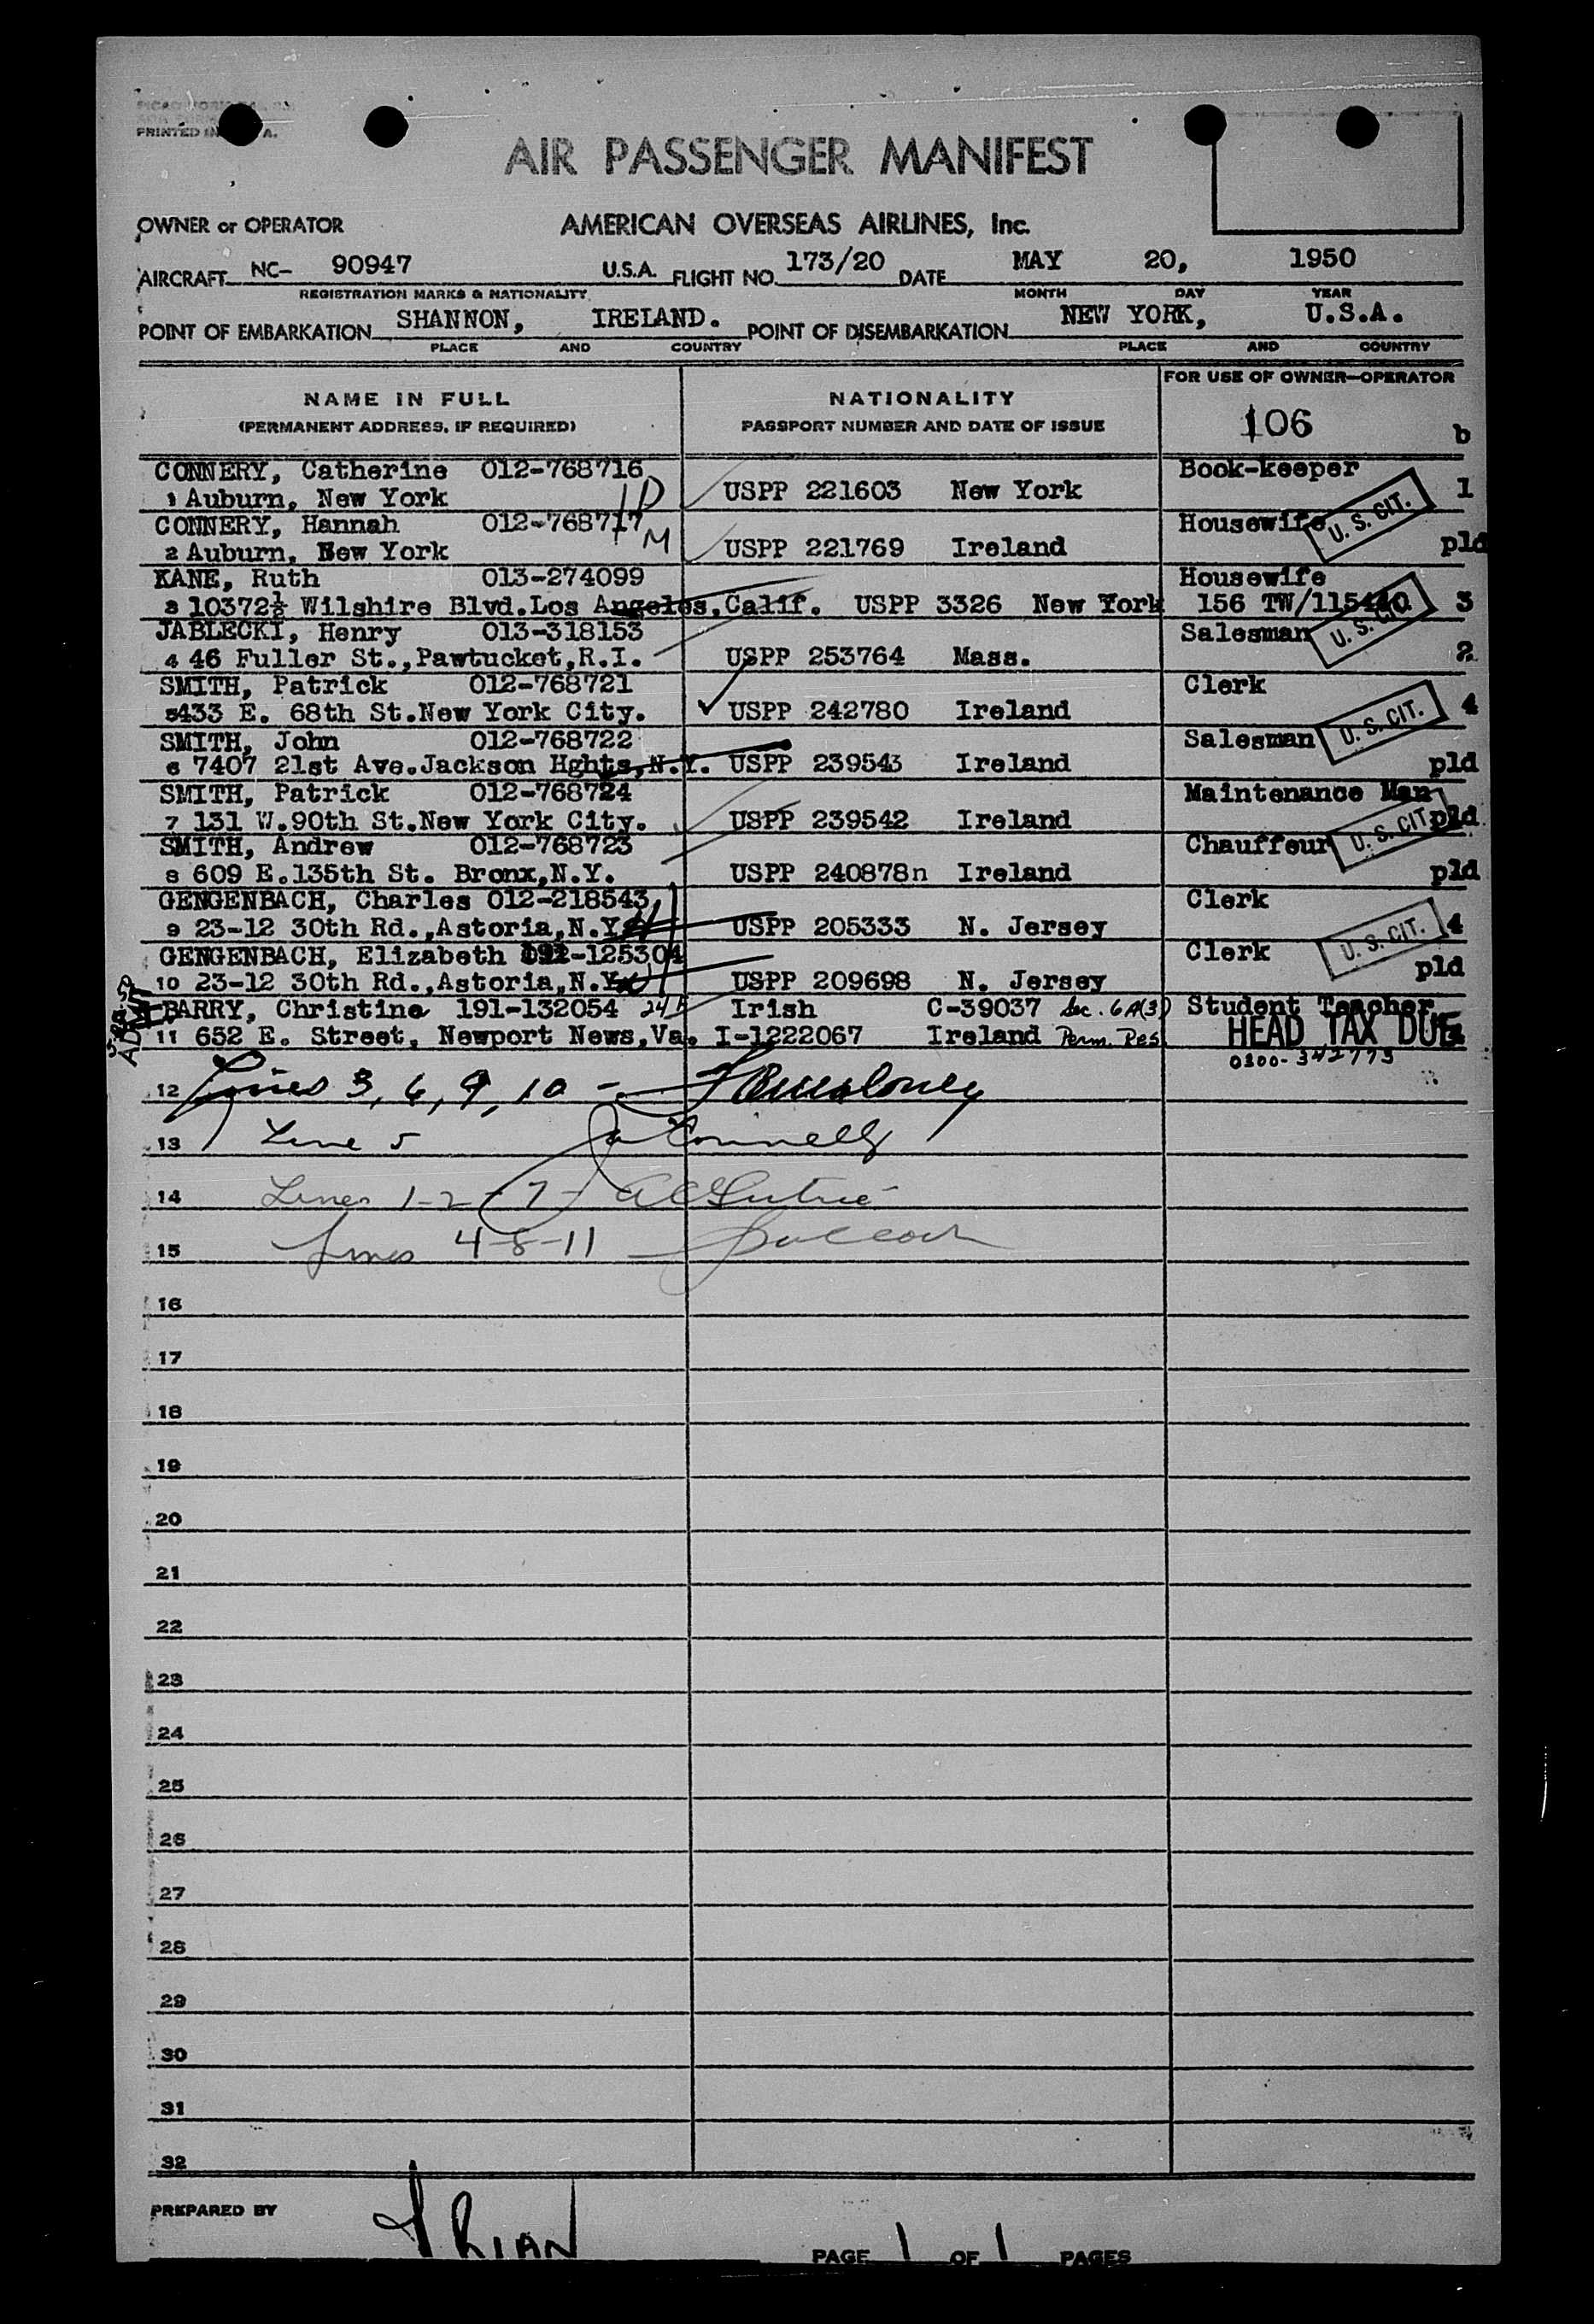 PRINTED IN
A.
AIR PASSENGER MANIFEST
OWNER or OPERATOR AMERICAN OVERSEAS AIRLINES, Inc.
AIRCRAFT NC- 90947 U.S.A. FLIGHT NO. 173/20 DATE MAY 20, 1950
REGISTRATION MARKS & NATIONALITY MONTH DAY YEAR
POINT OF EMBARKATION SHANNON, IRELAND. POINT OF DISEMBARKATION NEW YORK, U.S.A.
PLACE AND COUNTRY PLACE AND COUNTRY
NAME IN FULL NATIONALITY FOR USE OF OWNER—OPERATOR
(PERMANENT ADDRESS, IF REQUIRED) PASSPORT NUMBER AND DATE OF ISSUE 106 b
CONNERY, Catherine 012-768716 Book-keeper
1 Auburn, New York USPP 221603 New York U. S. CIT. 1
CONNERY, Hannah 012-768717 Housewife
2 Auburn, New York M USPP 221769 Ireland pld
KANE, Ruth 013-274099 Housewife
3 10372½ Wilshire Blvd.Los Angeles,Calif. USPP 3326 New York 156 TW/115440 3
JABLECKI, Henry 013-318153 Salesman U. S. CIT.
4 46 Fuller St.,Pawtucket,R.I. USPP 253764 Mass. 2
SMITH, Patrick 012-768721 Clerk
5 433 E. 68th St.New York City. USPP 242780 Ireland U. S. CIT. 4
SMITH, John 012-768722 Salesman
6 7407 21st Ave.Jackson Hghts,N.Y. USPP 239543 Ireland pld
SMITH, Patrick 012-768724 Maintenance Man
7 131 W.90th St.New York City. USPP 239542 Ireland U. S. CIT. pld
SMITH, Andrew 012-768723 Chauffeur
8 609 E.135th St. Bronx,N.Y. USPP 240878n Ireland pld
GENGENBACH, Charles 012-218543 Clerk
9 23-12 30th Rd.,Astoria,N.Y. USPP 205333 N. Jersey U. S. CIT. 4
GENGENBACH, Elizabeth -125304 Clerk
10 23-12 30th Rd.,Astoria,N.Y. USPP 209698 N. Jersey pld
ADMIT BARRY, Christine 191-132054 Irish C-39037 Sec. 6A(3) Student Teacher
11 652 E. Street, Newport News,Va. I-1222067 Ireland Perm. Res. HEAD TAX DUE
0300-342773
12 Lines 3, 6, 9, 10 -
13 Line 5 Connelly
14 Lines 1-2-7-
15 Lines 4-8-11
16
17
18
19
20
21
22
23
24
25
26
27
28
29
30
31
32
PREPARED BY RIAN
PAGE 1 OF 1 PAGES